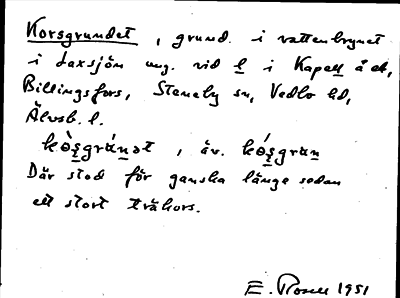 Korsgrundet, grund. i vattenbrynet
i Laxsjön ung. vid l i Kapell å ek,
Billingsfors, Steneby sn, Vedbo hd,
Älvsb. l.
kòṣgrúnət, äv. kóṣgrun
Där stod för ganska länge sedan
ett stort träkors.
E. Rosell 1951